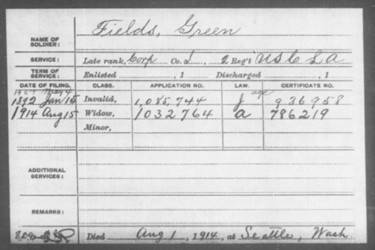 Fields, Green
NAME OF SOLDIER:
SERVICE: Late rank, Corp Co. 2 Reg't U S C L A
TERM OF SERVICE: Enlisted , 1 Discharged , 1
DATE OF FILING. CLASS. APPLICATION NO. LAW. CERTIFICATE NO.
1892 Jan 15 Invalid, 1,085,744 J 936958
1914 Aug 15 Widow, 1032764 a 786219
Minor,
ADDITIONAL SERVICES:
REMARKS:
Died Aug 1, 1914, at Seattle, Wash.